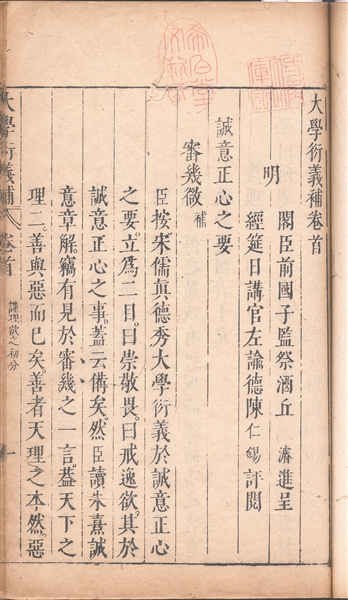 大學衍義補卷首
明
閣臣前國子監祭酒丘濬進呈
經筵日講官左諭德陳仁錫評閱
誠意正心之要
審幾微補
臣按宋儒真德秀大學衍義於誠意正心
之要立爲二目曰崇敬畏曰戒逸欲其於
誠意正心之事蓋云備矣然臣讀朱熹誠
意章解竊有見於審幾之一言蓋天下之
理二善與惡而已矣善者天理之本然惡
謹理欲之初分
大學衍義補 卷首